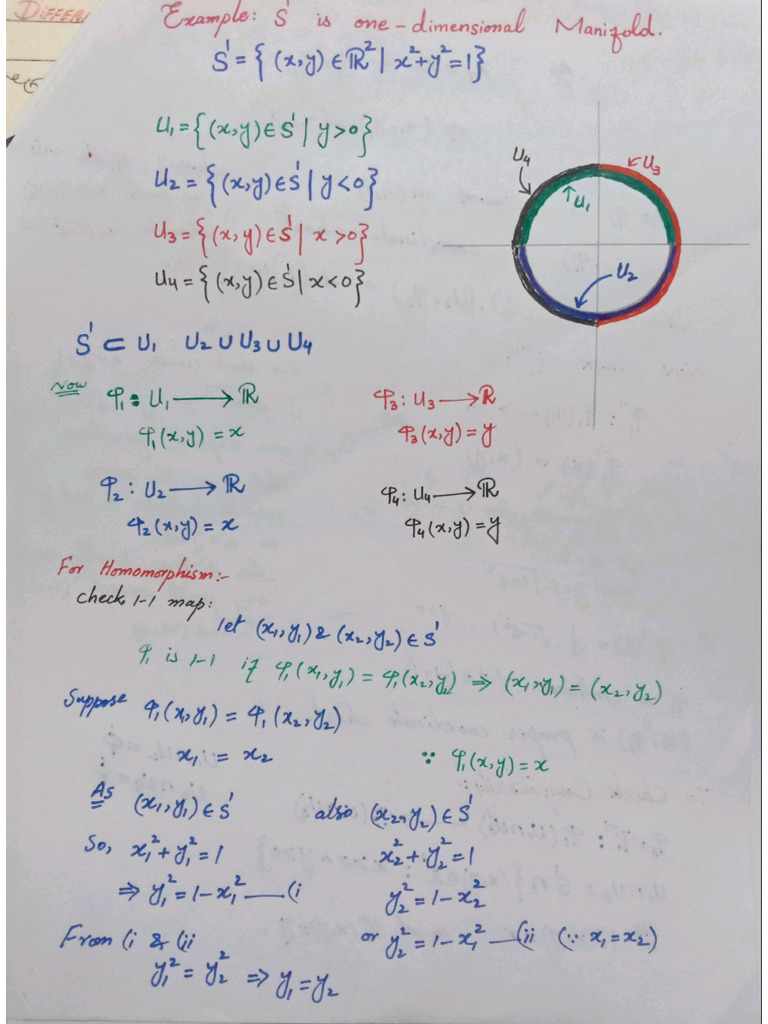 DIFFER
Example: S¹ is one-dimensional Manifold.
S¹ = { (x,y) ∈ ℝ² | x²+y²=1}
U₁ = {(x,y) ∈ S¹ | y>0}
U₂ = {(x,y) ∈ S¹ | y<0}
U₃ = {(x,y) ∈ S¹ | x>0}
U₄ = {(x,y) ∈ S¹ | x<0}
U₄
U₃
U₁
U₂
S¹ ⊂ U₁ U₂ ∪ U₃ ∪ U₄
Now φ₁ : U₁ → ℝ
φ₁(x,y) = x
φ₃ : U₃ → ℝ
φ₃(x,y) = y
φ₂ : U₂ → ℝ
φ₂(x,y) = x
φ₄ : U₄ → ℝ
φ₄(x,y) = y
For Homomorphism:-
check 1-1 map:
let (x₁,y₁) & (x₂,y₂) ∈ S¹
φ₁ is 1-1 if φ₁(x₁,y₁) = φ₁(x₂,y₂) ⇒ (x₁,y₁) = (x₂,y₂)
Suppose φ₁(x,y₁) = φ₁(x₂,y₂)
x₁ = x₂ ∵ φ₁(x,y) = x
As (x₁,y₁) ∈ S¹ also (x₂,y₂) ∈ S¹
So, x₁²+y₁²=1 x₂²+y₂²=1
⇒ y₁² = 1-x₁² —(i y₂² = 1-x₂²
From (i & (ii or y₂² = 1-x₁² —(ii (∵ x₁=x₂)
y₁² = y₂² ⇒ y₁ = y₂